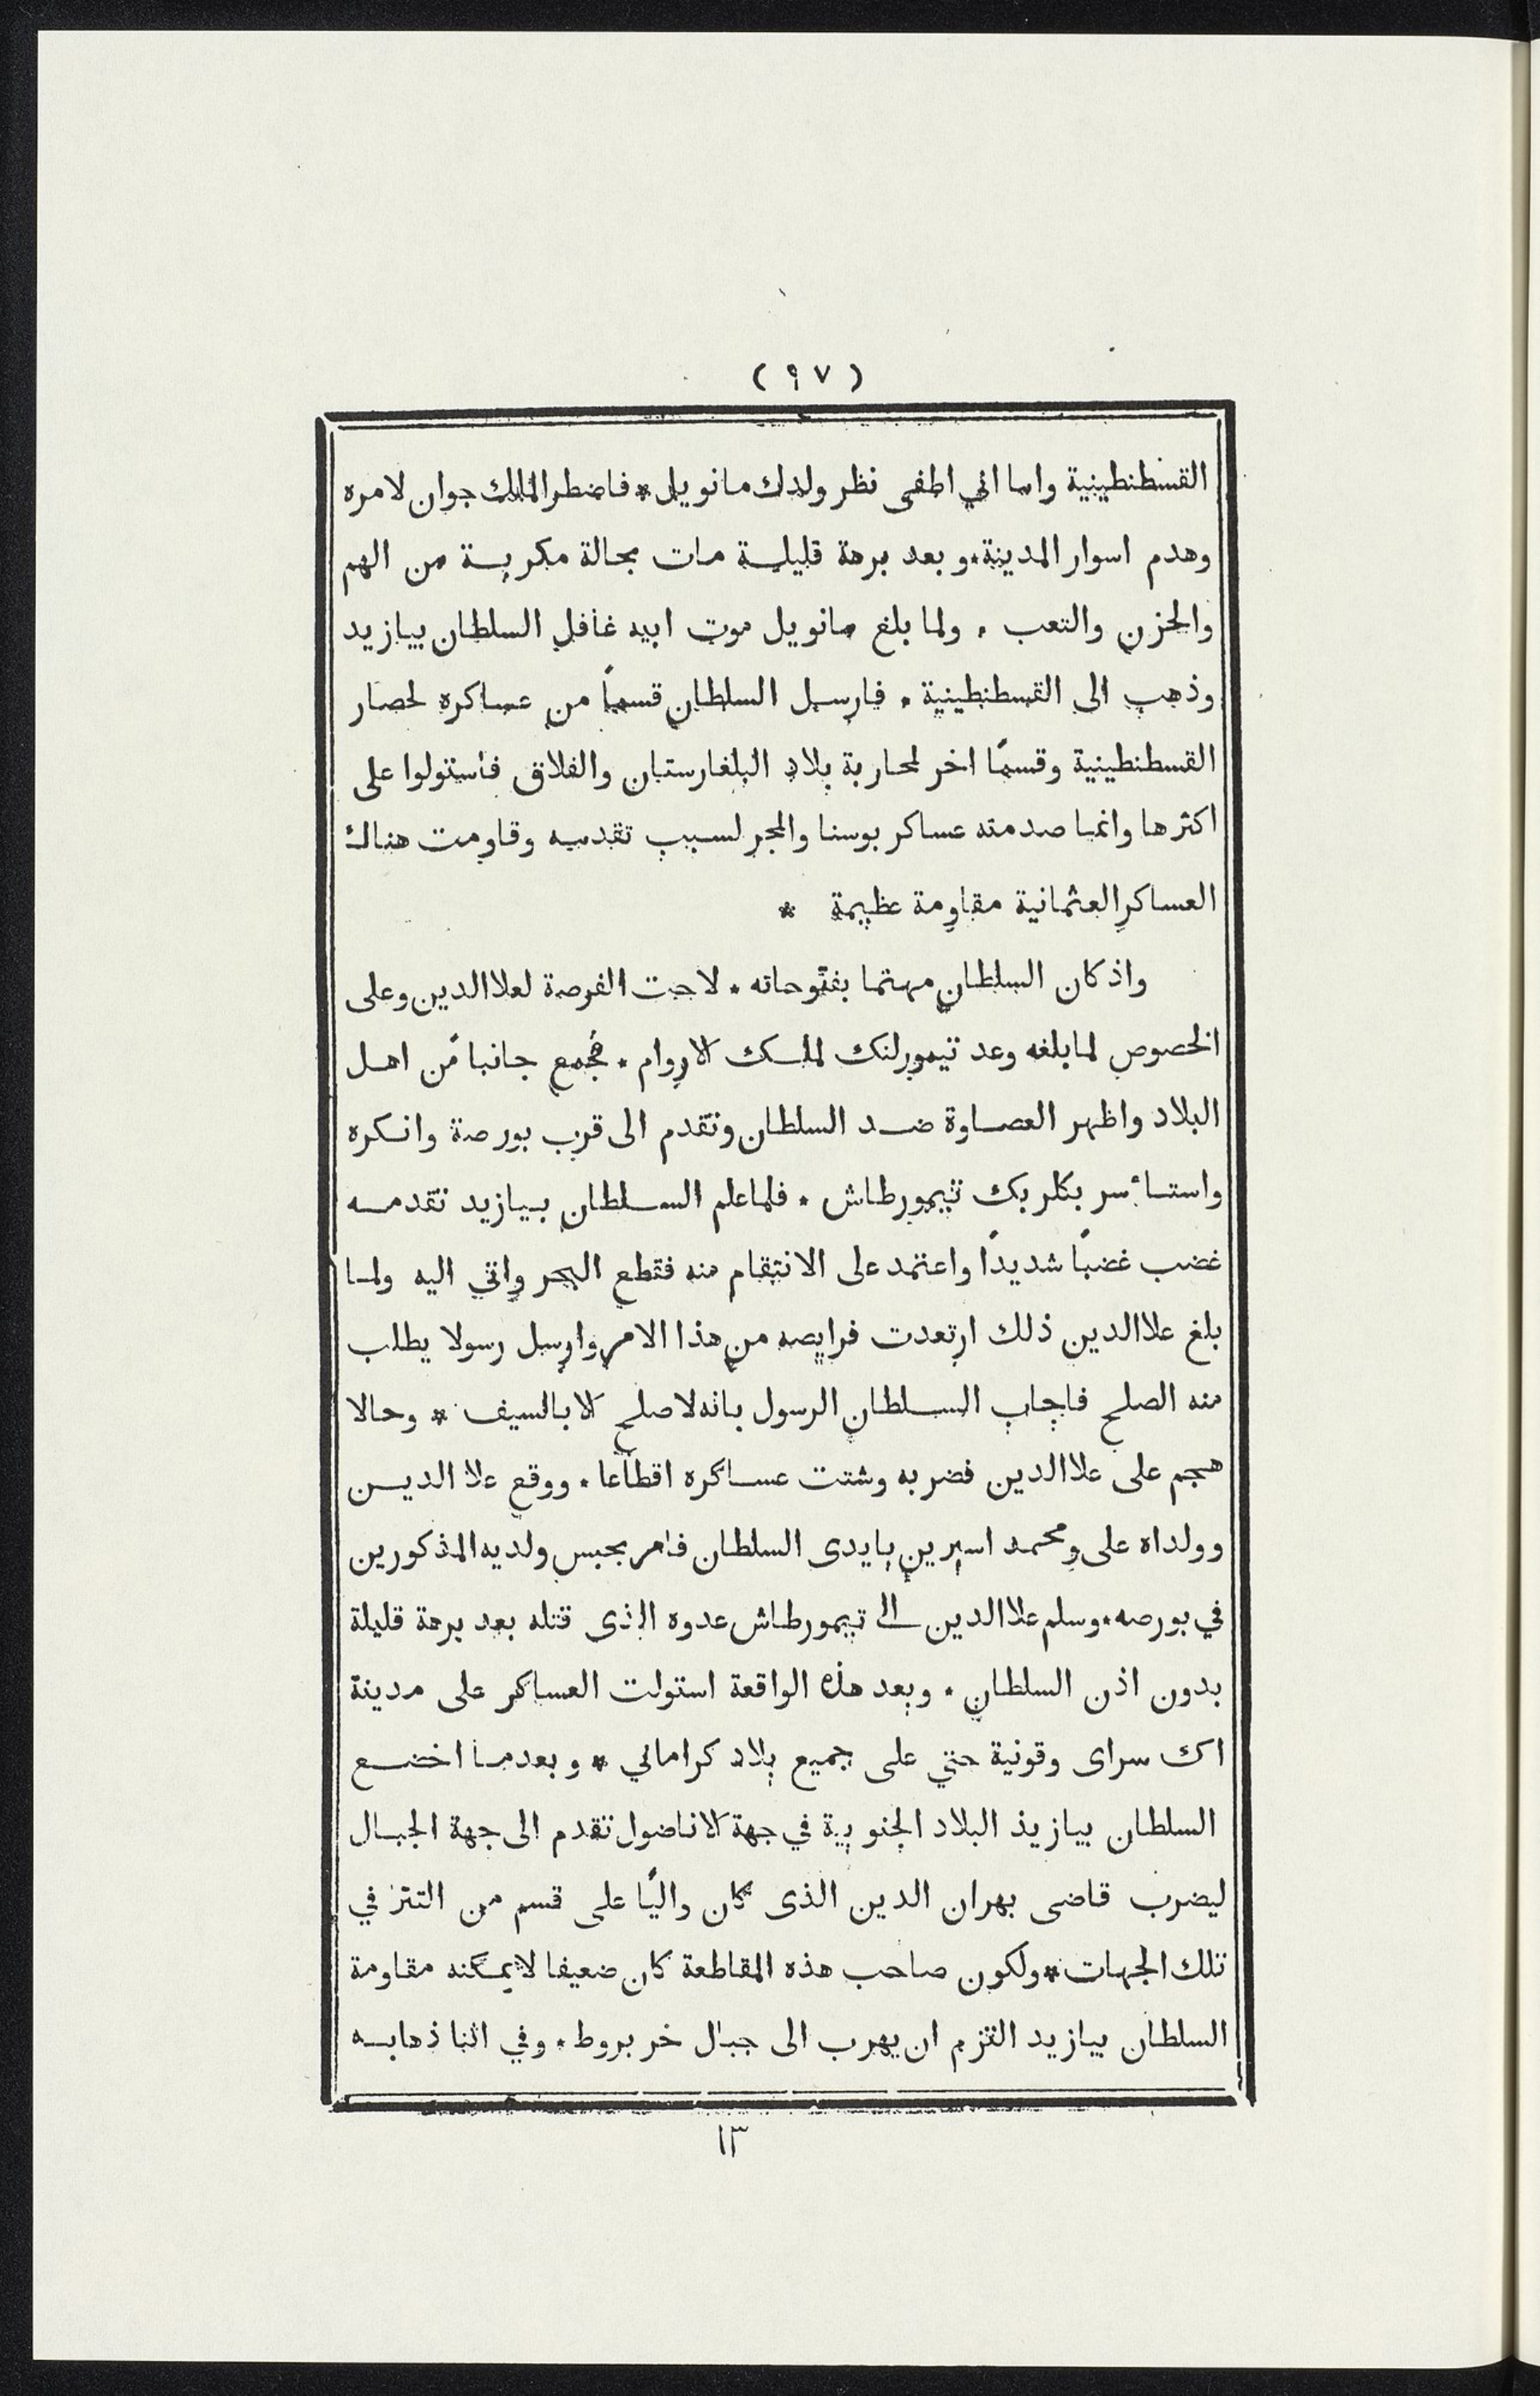 ( ٩٧ )
القسطنطينية واما اني اطفى نظر ولدك مانويل * فاضطر الملك جوان لامره
وهدم اسوار المدينة * وبعد برهة قليلة مات بحالة مكربة من الهم
والحزن والتعب * ولما بلغ مانويل موت ابيه غافل السلطان بيازيد
وذهب الى القسطنطينية * فارسل السلطان قسماً من عساكره لحصار
القسطنطينية وقسمًا اخر لمحاربة بلاد البلغارستان والفلاق فاستولوا على
اكثرها وانما صدمته عساكر بوسنا والمجر لسبب تقدمه وقاومت هناك
العساكر العثمانية مقاومة عظيمة *
واذ كان السلطان مهتما بفتوحاته * لاحت الفرصة لعلا الدين وعلى
الخصوص لما بلغه وعد تيمورلنك لملك الاروام * فجمع جانباً من اهل
البلاد واظهر العصاوة ضد السلطان وتقدم الى قرب بورصة وانكره
واستأسر بكلر بك تيمورطاش * فلما علم السلطان بيازيد تقدمه
غضب غضبًا شديدًا واعتمد على الانتقام منه فقطع البحر واتي اليه ولما
بلغ علا الدين ذلك ارتعدت فرايصه من هذا الامر وارسل رسولا يطلب
منه الصلح فاجاب السلطان الرسول بانه لا صلح الا بالسيف * وحالا
هجم على علا الدين فضربه وشتت عساكره اقطاعًا * ووقع علا الدين
وولداه على ومحمد اسيرين بايدى السلطان فامر بحبس ولديه المذكورين
في بورصه * وسلم علا الدين الى تيمورطاش عدوه الذى قتله بعد برهة قليلة
بدون اذن السلطان * وبعد هذه الواقعة استولت العساكر على مدينة
اك سراى وقونية حتي على جميع بلاد كرامالي * وبعدما اخضع
السلطان بيازيد البلاد الجنوبية في جهة الاناضول تقدم الى جهة الجبال
ليضرب قاضى بهران الدين الذى كان واليًا على قسم من التتر في
تلك الجهات * ولكون صاحب هذه المقاطعة كان ضعيفا لا يمكنه مقاومة
السلطان بيازيد التزم ان يهرب الى جبال خربروط * وفي اثنا ذهابه
١٣